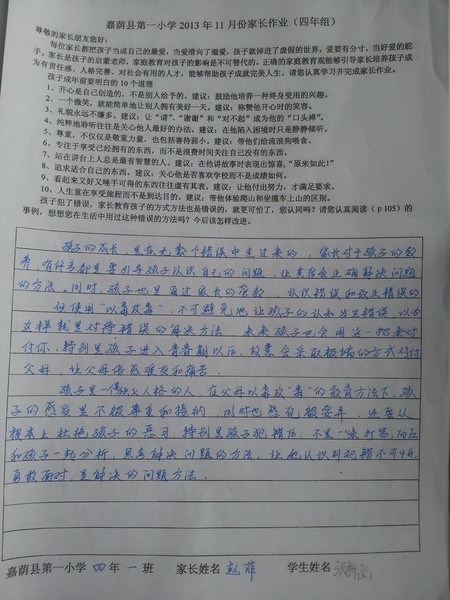 嘉荫县第一小学 2013 年 11 月份家长作业（四年组）
尊敬的家长朋友您好：
每位家长都把孩子当成自己的最爱，当爱滑向了溺爱，孩子就掉进了虚假的世界，爱要有分寸，当好爱的舵
手，家长是孩子的启蒙老师，家庭教育对孩子的影响是不可替代的。正确的家庭教育观能够引导家长培养孩子成
为有责任感、人格完善、对社会有用的人才，能够帮助孩子成就完美人生。请您认真学习并完成家长作业。
孩子成年前要明白的 10 个道理
1、开心是自己创造的，不是别人给予的。建议：鼓励他培养一种终身受用的兴趣。
2、一个微笑，就能简单地让别人拥有美好一天。建议：称赞他开心时的笑容。
3、礼貌永远不嫌多。建议：让“请”、“谢谢”和“对不起”成为他的“口头禅”。
4、纯粹地聆听往往是关心他人最好的办法。建议：在他陷入困境时只是静静倾听。
5、尊重，不仅仅是敬重力量，也包括善待弱小。建议：带他们给流浪狗喂食。
6、专注于享受已经拥有的东西，而不是浪费时间关注自己没有的东西。
7、站在讲台上人总是最有智慧的人。建议：在他讲故事时表现出惊喜，“原来如此！”
8、追求适合自己的东西。建议：关心他是否喜欢学校而不是成绩如何。
9、看起来又好又唾手可得的东西往往虚有其表。建议：让他付出努力，才满足要求。
10、人生重在享受旅程而不是到达目的。建议：带他体验爬山和坐缆车上山的区别。
孩子犯了错误，家长教育孩子的方式方法也是错误的，就更可怕了，您认同吗？请您认真阅读（p 105）的
事例，想想您在生活中用过这种错误的方法吗？今后该怎样改进。
孩子的成长，是在无数个错误中走过来的，家长对于孩子的教
养，有许多都是要引导孩子认识自己的问题，让其学会正确解决问题
的方法。同时，孩子也是通过家长的管教，认识错误和改正错误的
但使用“以毒攻毒”，不可避免地让孩子的认知发生错误，以为
这样就是对待错误的解决方法，未来孩子也会用这一招来对
付你。特别是孩子进入青春期以后，故意会采取极端的方式对付
父母，让父母倍感难受和痛苦。
孩子是一个独立人格的人，在父母以毒攻“毒”的教育方法下，孩
子的感受是不被尊重和接纳，同时也然有被受弃，还要从
根本上杜绝孩子的恶习，特别是孩子犯错后，不是一味打骂，而应
和孩子一起分析，思考解决问题的方法，让他认识到犯错不可怕，
勇敢面对，是解决的问题方法。
嘉荫县第一小学 四 年 一 班 家长姓名 赵萍 学生姓名